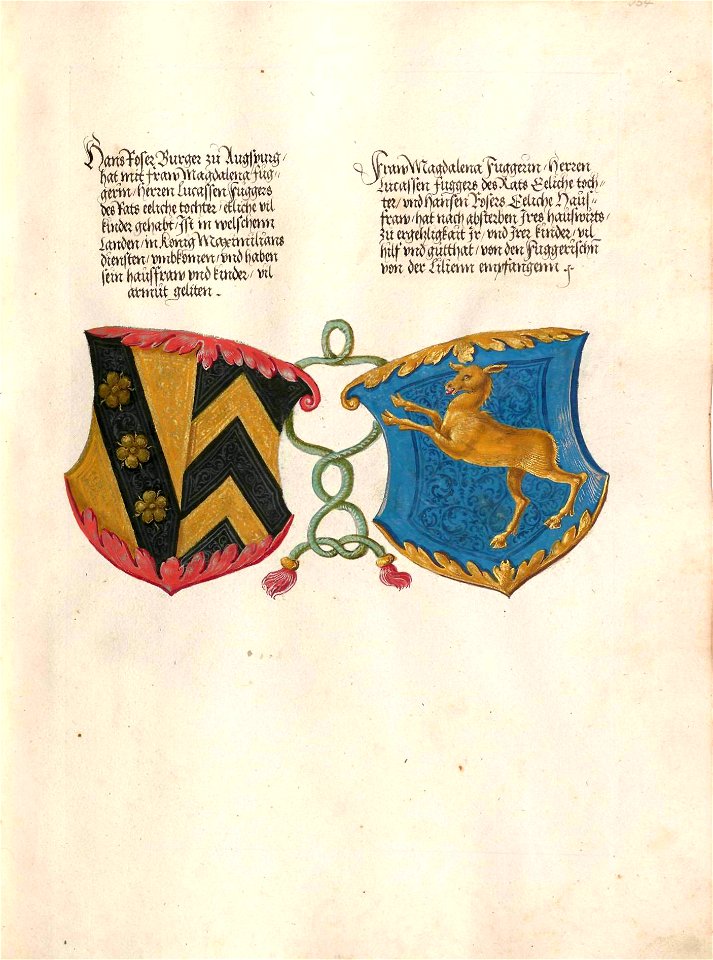 Hans Roser Burger zu Augspurg /
hat mit fraw Magdalena Fug-
gerin / Herren Lucassen Fuggers
des Rats eeliche tochter / etliche vil
kinder gehabt / Ist in welschenn
Landen / in König Maximilians
diensten / umbkomen / vnd haben
sein hausfraw vnd kinder / vil
armut geliten .
Fraw Magdalena Fuggerin / Herren
Lucassen Fuggers des Rats Eeliche toch-
ter / vnd Hansen Rosers Eeliche Haus-
fraw / hat nach absterben Ires hauswirts /
zu ergehligkait Ir / vnd Irer kinder / vil
hilf vnd gutthat / von den Fuggerischn
von der Lilienn empfangenn .